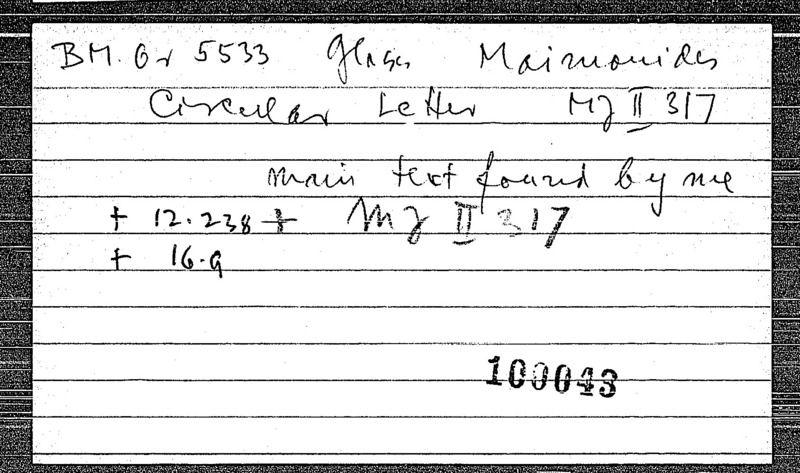 BM. Or 5533 glass Maimonides
Circular Letter MJ II 317
main text found by me
+ 12.238 + MJ II 317
+ 16.9
100043